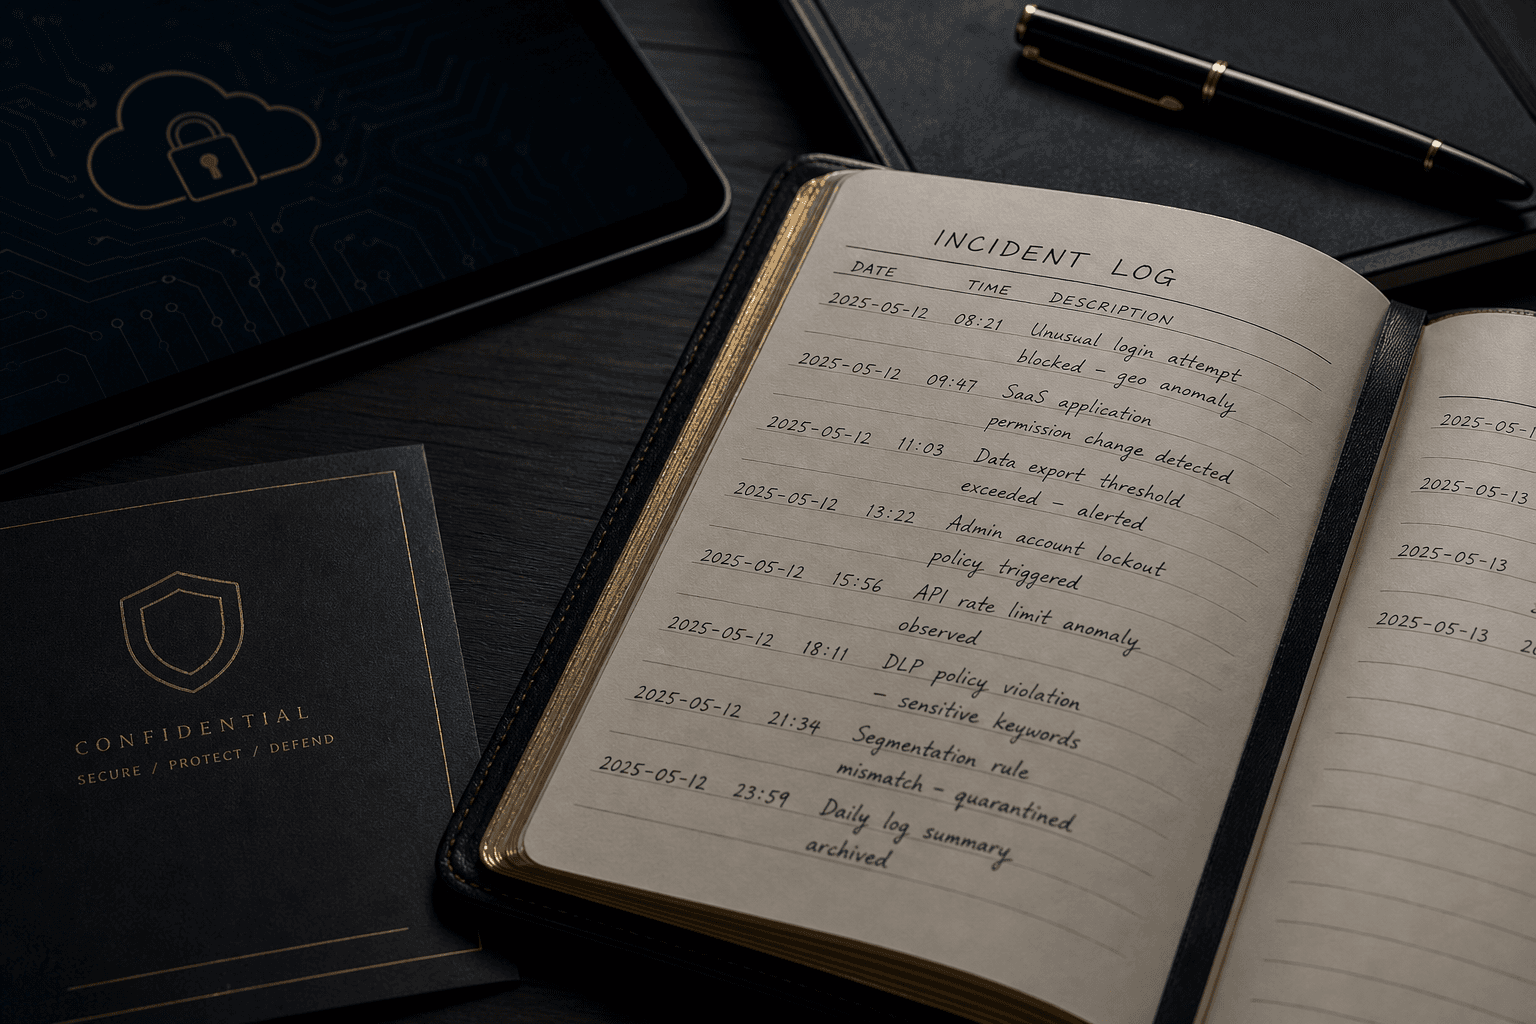 INCIDENT LOG
DATE TIME DESCRIPTION
2025-05-12 08:21 Unusual login attempt
blocked – geo anomaly
2025-05-12 09:47 SaaS application
permission change detected
2025-05-12 11:03 Data export threshold
exceeded – alerted
2025-05-12 13:22 Admin account lockout
policy triggered
2025-05-12 15:56 API rate limit anomaly
observed
2025-05-12 18:11 DLP policy violation
– sensitive keywords
2025-05-12 21:34 Segmentation rule
mismatch – quarantined
2025-05-12 23:59 Daily log summary
archived
2025-05-13
2025-05-13
2025-05-13
CONFIDENTIAL
SECURE / PROTECT / DEFEND